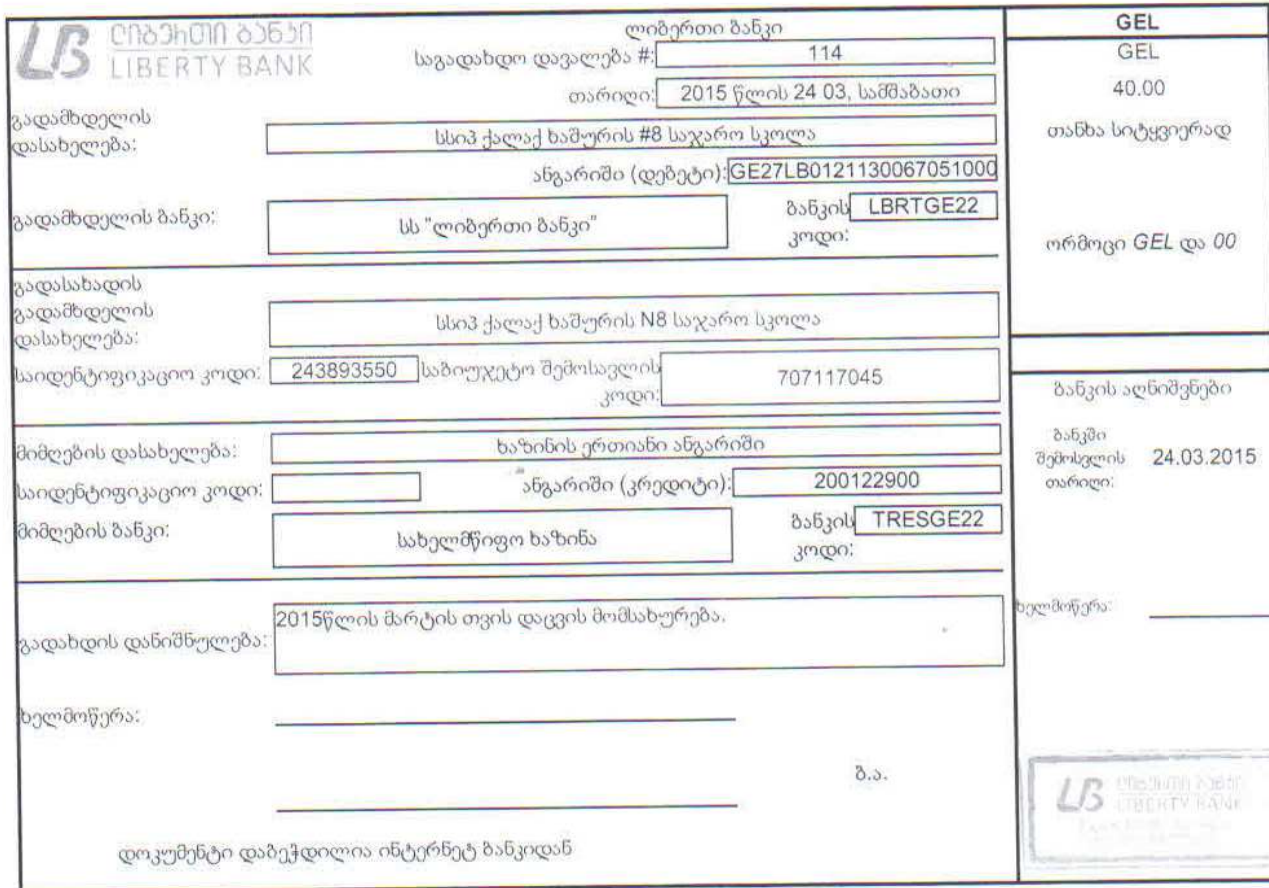 LB ლიბერთი ბანკი
LIBERTY BANK
ლიბერთი ბანკი
საგადახდო დავალება #: 114
თარიღი: 2015 წლის 24 03, სამშაბათი
გადამხდელის
დასახელება: სსიპ ქალაქ ხაშურის #8 საჯარო სკოლა
ანგარიში (დებეტი): GE27LB0121130067051000
გადამხდელის ბანკი: სს "ლიბერთი ბანკი" ბანკის კოდი: LBRTGE22
გადასახადის
გადამხდელის
დასახელება: სსიპ ქალაქ ხაშურის N8 საჯარო სკოლა
საიდენტიფიკაციო კოდი: 243893550 საბიუჯეტო შემოსავლის კოდი: 707117045
მიმღების დასახელება: ხაზინის ერთიანი ანგარიში
საიდენტიფიკაციო კოდი: ანგარიში (კრედიტი): 200122900
მიმღების ბანკი: სახელმწიფო ხაზინა ბანკის კოდი: TRESGE22
გადახდის დანიშნულება: 2015წლის მარტის თვის დაცვის მომსახურება.
ხელმოწერა:
ბ.ა.
დოკუმენტი დაბეჭდილია ინტერნეტ ბანკიდან
GEL
GEL
40.00
თანხა სიტყვიერად
ორმოცი GEL და 00
ბანკის აღნიშვნები
ბანკში
შემოსვლის 24.03.2015
თარიღი:
ხელმოწერა:
LB ლიბერთი ბანკი
LIBERTY BANK